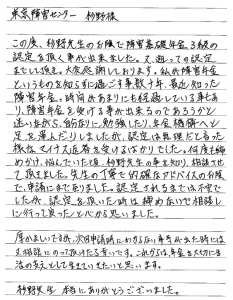 東京障害センター 杉野様
この度、杉野先生のお陰で障害基礎年金2級の
認定を頂く事が出来ました。又、遡っての認定
までして頂き、大変感謝しております。私が障害年金
というものを知らずに過ごす事数十年、最近知った
障害年金。時間があまりにも経過している事もあ
り、障害年金を受ける事が出来るのであろうかと
迷いながら、自分なりに勉強したり、年金機構へと
足を運んだりしましたが、認定は無理だとなった
様なマイナス返答を受けるばかりでした。何度も諦
めかけ、悩んでいた頃、杉野先生の事を知り、相談させ
て頂きました。先生の丁寧で的確なアドバイスのお陰
で、申請にまで至りました。認定されるまでは不安で
したが、認定を頂いた時は諦めないで相談し
に行って良かったと心から思いました。
厚かましいですが、次回申請時にわからない事等が出た時には
又相談にのって頂けたら幸いです。これからは、年金を大切に生
活の支えとして生きていきたいと思います。
杉野先生 本当にありがとうございました。